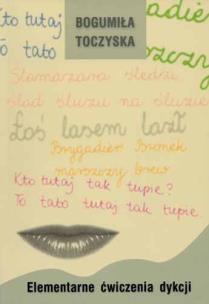 Kto tutaj
To tato
BOGUMIŁA
TOCZYSKA
Ślamazara śledzi
ślad śluzu na śluzie
Łoś lasem lazł
Brygadier Bronek
marszczy brew
Kto tutaj tak tupie?
To tato tutaj tak tupie.
Elementarne ćwiczenia dykcji